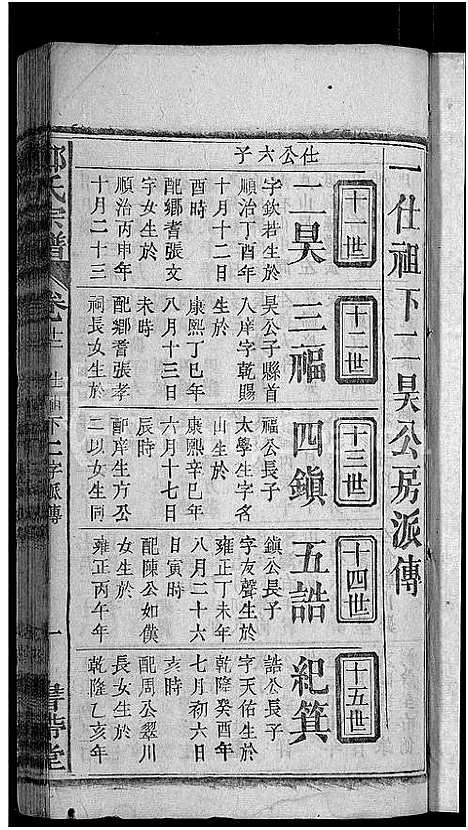 一仕祖下二昊公房派傳
十一世
仕公六子
二昊
字欽若生於
順治丁酉年
十月十二日
酉時
配鄉耆張文
宇女生於
順治丙申年
十月二十三
十二世
三福
昊公子縣首
八庠字乾賜
生於
康熙丁巳年
八月十三日
未時
配鄉耆張孝
祠長女生於
十三世
四鎮
福公長子
太學生字名
山生於
康熙辛巳年
六月十七日
辰時
配庠生方公
二以女生同
十四世
五誥
鎮公長子
字友聲生於
雍正丁未年
八月二十六
日寅時
配陳公如僕
女生於
雍正丙午年
十五世
紀箕
誥公長子
字天佑生於
乾隆癸酉年
七月初六日
亥時
配周公翠川
長女生於
乾隆乙亥年
氏宗譜
卷
仕祖下二字派傳
一
堂